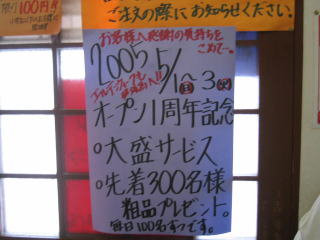 割引100円
ご注文の際にお知らせください。
お客様へ感謝の気持ちを
こめて…
2005 5/1(日)〜3(火)
オープン1周年記念
・大盛サービス
・先着300名様
粗品プレゼント。
毎日100名ずつです。